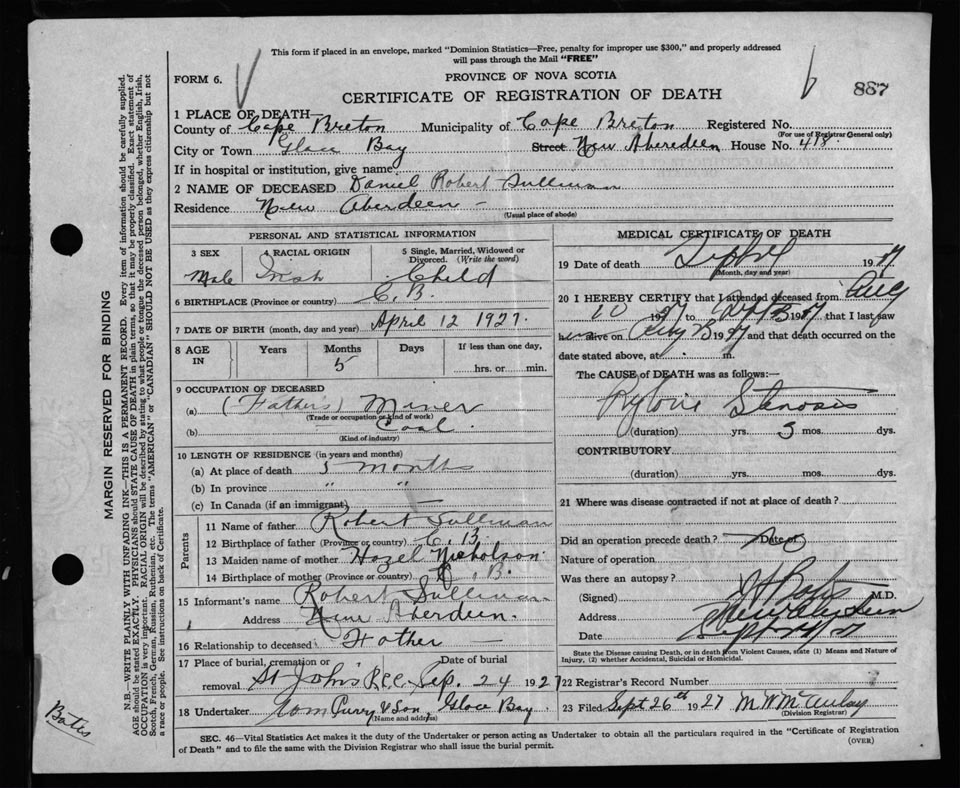 This form if placed in an envelope, marked "Dominion Statistics—Free, penalty for improper use $300," and properly addressed
will pass through the Mail "FREE"
FORM 6.
PROVINCE OF NOVA SCOTIA
CERTIFICATE OF REGISTRATION OF DEATH
887
1 PLACE OF DEATH—
County of Cape Breton Municipality of Cape Breton Registered No.
(For use of Registrar General only)
City or Town Glace Bay Street New Aberdeen House No. 418
If in hospital or institution, give name
2 NAME OF DECEASED Daniel Robert Sullivan
Residence New Aberdeen —
(Usual place of abode)
PERSONAL AND STATISTICAL INFORMATION
3 SEX Male
4 RACIAL ORIGIN Irish
5 Single, Married, Widowed or Divorced. (Write the word) Child
6 BIRTHPLACE (Province or country) C. B.
7 DATE OF BIRTH (month, day and year) April 12 1927.
8 AGE IN Years Months 5 Days If less than one day, hrs. or min.
9 OCCUPATION OF DECEASED
(a) (Father's) Miner
(Trade or occupation or kind of work)
(b) Coal
(Kind of industry)
10 LENGTH OF RESIDENCE (in years and months)
(a) At place of death 5 months
(b) In province " "
(c) In Canada (if an immigrant) —
Parents
11 Name of father Robert Sullivan
12 Birthplace of father (Province or country) C. B.
13 Maiden name of mother Hazel Nicholson
14 Birthplace of mother (Province or country) C. B.
15 Informant's name Robert Sullivan
Address New Aberdeen.
16 Relationship to deceased Father —
17 Place of burial, cremation or removal St John's Date of burial Sep. 24 1927
18 Undertaker Tom Curry & Son, Glace Bay
(Name and address)
MEDICAL CERTIFICATE OF DEATH
19 Date of death Sept 1927
(Month, day and year)
20 I HEREBY CERTIFY that I attended deceased from Aug
10 1927 to Sept 1927 that I last saw
him alive on 1927 and that death occurred on the
date stated above, at m.
The CAUSE of DEATH was as follows:—
Pyloric Stenosis
(duration) yrs. 3 mos. dys.
CONTRIBUTORY
(duration) yrs. mos. dys.
21 Where was disease contracted if not at place of death?
Did an operation precede death? no Date of
Nature of operation
Was there an autopsy?
(Signed) Bates M.D.
Address New Aberdeen
Date Sept
State the Disease causing Death, or in death from Violent Causes, state (1) Means and Nature of
Injury, (2) whether Accidental, Suicidal or Homicidal.
22 Registrar's Record Number
23 Filed Sept 26th 1927 M. W. McAulay
(Division Registrar)
SEC. 46—Vital Statistics Act makes it the duty of the Undertaker or person acting as Undertaker to obtain all the particulars required in the "Certificate of Registration
of Death" and to file the same with the Division Registrar who shall issue the burial permit.
(OVER)
MARGIN RESERVED FOR BINDING
N.B.—WRITE PLAINLY WITH UNFADING INK—THIS IS A PERMANENT RECORD. Every item of information should be carefully supplied.
AGE should be stated EXACTLY. PHYSICIANS should STATE CAUSE OF DEATH in plain terms, so that it may be properly classified. Exact statement of
OCCUPATION is very important. RACIAL ORIGIN will be described by stating to what people or tongue the deceased person belonged, whether English, Irish,
Scotch, French, German, Russian, Ruthenian, etc. The terms "AMERICAN" or "CANADIAN" SHOULD NOT BE USED as they express citizenship but not
a race or people. See instructions on back of Certificate.
Bates